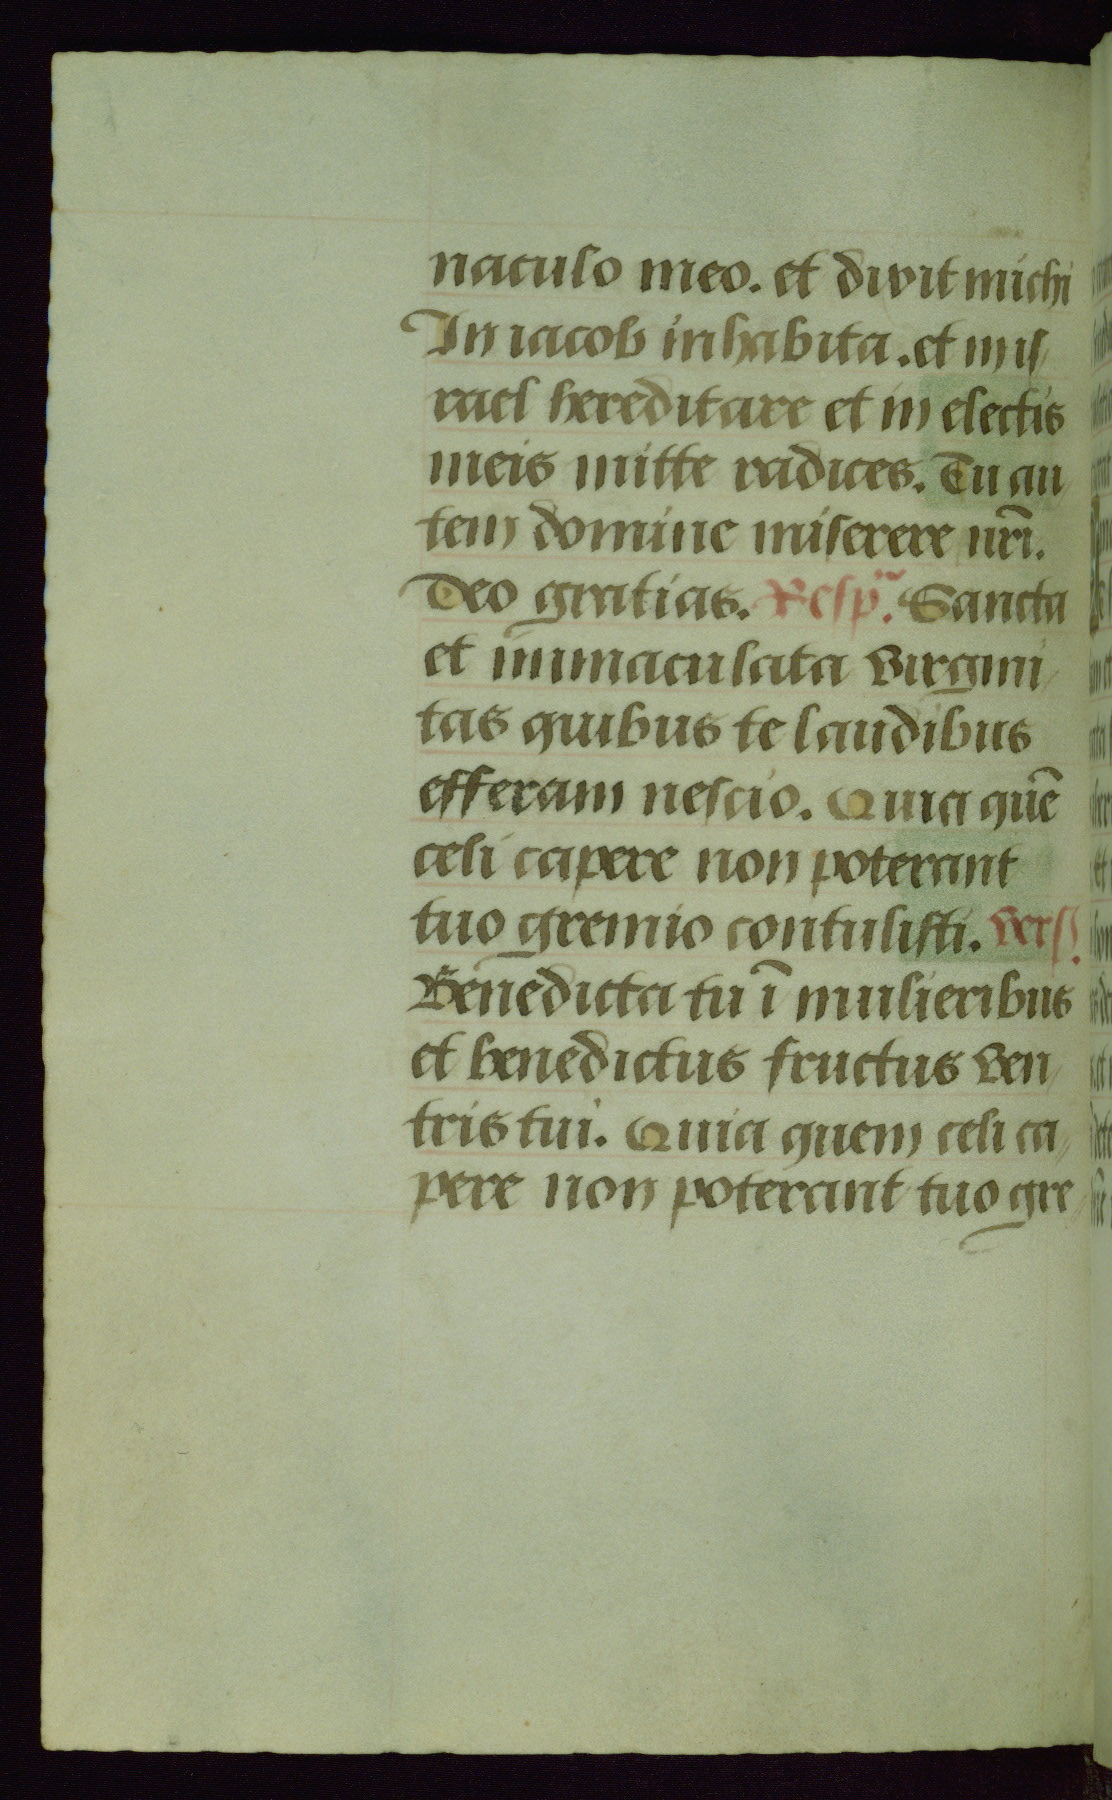 naculo meo. et dixit michi
In iacob inhabita. et in is
rael hereditare et in electis
meis mitte radices. Tu au
tem domine miserere nr̃i.
Deo gratias. Resp̃. Sancta
et immaculata virgini
tas quibus te laudibus
efferam nescio. Quia quẽ
celi capere non poterant
tuo gremio contulisti. vers.
Benedicta tu ĩ mulieribus
et benedictus fructus ven
tris tui. Quia quem celi ca
pere non poterant tuo gre